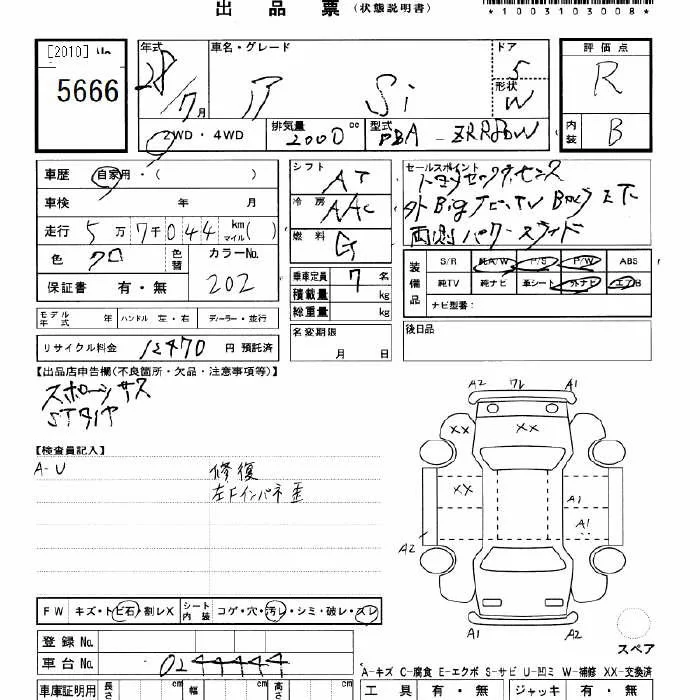 出品票 (状態説明書)
*1003103008*
[2010] Un
5666
年式 車名・グレード ドア 評価点
28 7月 Si 5 R
形状 W
2WD・4WD 排気量 2000 cc 型式 DBA- ZRR80W 内装 B
車歴 自家用・( )
シフト AT
セールスポイント
車検 年 月
冷房 AAC
走行 5万7千044 km マイル( )
外Big ナビ・TV Bカメ ETC
両側パワースライド
燃料 G
色 クロ 色替 カラーNo. 202
保証書 有・無
乗車定員 7名
積載量 kg
総重量 kg
装備品 S/R 純A/W P/S P/W ABS
純TV 純ナビ 革シート 外ナビ エアB
ナビ型番:
モデル年式 年 ハンドル 左・右 ディーラー・並行
名変期限 月 日
後日品
リサイクル料金 12470 円 預託済
【出品店申告欄(不良箇所・欠品・注意事項等)】
STタイヤ
【検査員記入】
A-U 修復
左Fインパネ歪
A2 ワレ A1
XX XX
XX
A1
A1
A2
A1 A2
スペア
FW キズ・トビ石・割レX シート内装 コゲ・穴・汚レ・シミ・破レ・スレ
登録No.
車台No. 0244444
A-キズ C-腐食 E-エクボ S-サビ U-凹ミ W-補修 XX-交換済
車庫証明用 長さ cm 幅 cm 高さ cm 工具 有・無 ジャッキ 有・無